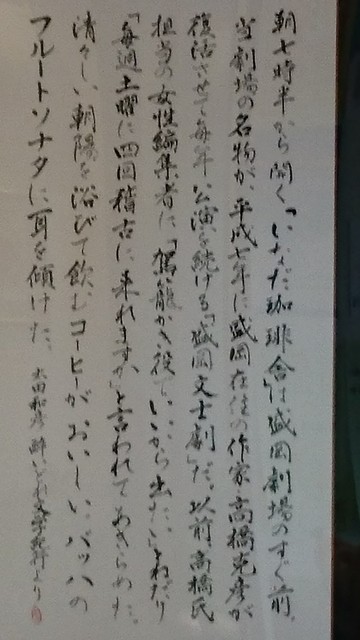 朝七時半から開く「いなだ珈琲舎」は盛岡劇場のすぐ前。
当劇場の名物が、平成七年に盛岡在住の作家・高橋克彦が
復活させて毎年公演を続ける「盛岡文士劇」だ。以前、高橋氏
担当の女性編集者に「駕籠かき役でいいから出たい」とねだり
「毎週土曜に四回稽古に来れますか」と言われてあきらめた。
清々しい朝陽を浴びて飲むコーヒーがおいしい。バッハの
フルートソナタに耳を傾けた。
太田和彦 酔いどれ文学紀行より